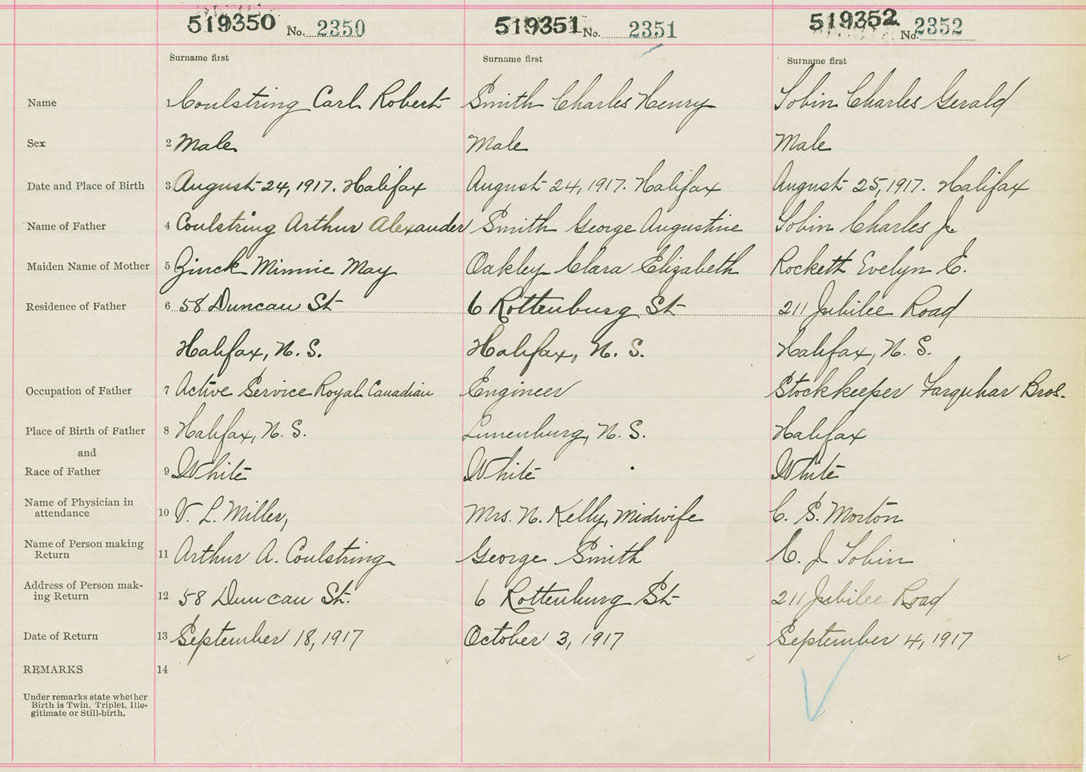 519350 No. 2350 519351 No. 2351 519352 No. 2352
Surname first Surname first Surname first
Name 1 Coulstring Carl Robert Smith Charles Henry Tobin Charles Gerald
Sex 2 Male Male Male
Date and Place of Birth 3 August 24, 1917. Halifax August 24, 1917. Halifax August 25, 1917. Halifax
Name of Father 4 Coulstring Arthur Alexander Smith George Augustine Tobin Charles J.
Maiden Name of Mother 5 Zinck Minnie May Oakley Clara Elizabeth Rockett Evelyn E.
Residence of Father 6 58 Duncan St 6 Rottenburg St 211 Jubilee Road
Halifax, N. S. Halifax, N. S. Halifax, N. S.
Occupation of Father 7 Active Service Royal Canadian Engineer Stockkeeper Farquhar Bros.
Place of Birth of Father 8 Halifax, N. S. Lunenburg, N. S. Halifax
and
Race of Father 9 White White White
Name of Physician in
attendance 10 V. L. Miller, Mrs. N. Kelly, Midwife C. S. Morton
Name of Person making
Return 11 Arthur A. Coulstring George Smith C. J. Tobin
Address of Person mak-
ing Return 12 58 Duncan St. 6 Rottenburg St 211 Jubilee Road
Date of Return 13 September 18, 1917 October 3, 1917 September 4, 1917
REMARKS 14
Under remarks state whether
Birth is Twin, Triplet, Ille-
gitimate or Still-birth.